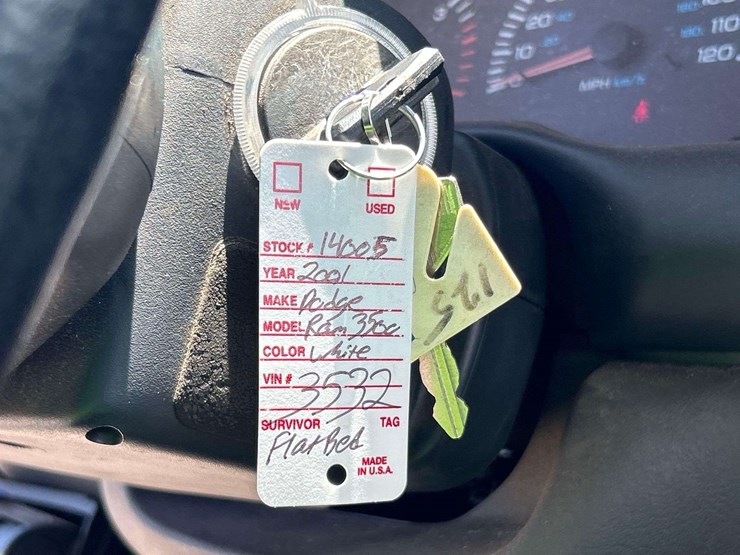 NEW USED
STOCK # 14005
YEAR 2001
MAKE Dodge
MODEL Ram 3500
COLOR White
VIN # 3532
SURVIVOR TAG
Flat Bed
MADE
IN U.S.A.
125
20
10
MPH km/h
110
120